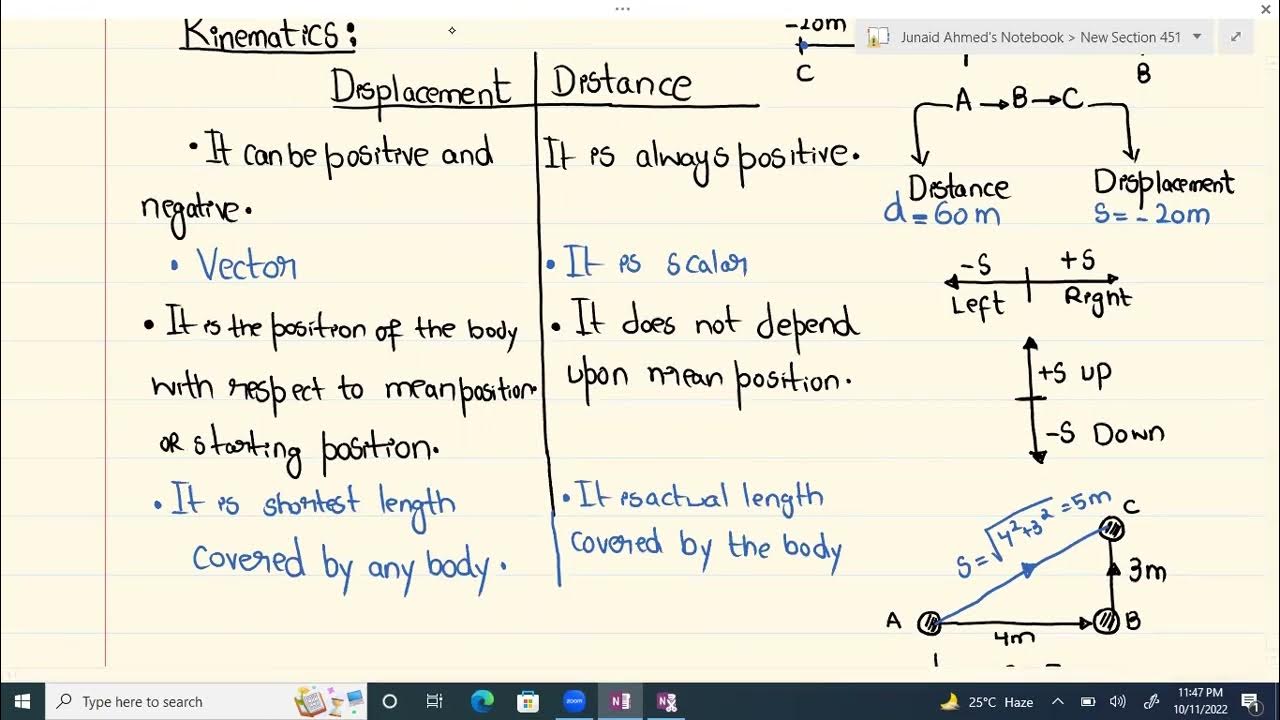 Kinematics:
Displacement
Distance
• It can be positive and
negative.
• Vector
• It is the position of the body
with respect to mean position
OR starting position.
• It is shortest length
covered by any body.
It is always positive.
• It is scalar
• It does not depend
upon mean position.
• It is actual length
covered by the body
-20m
C
B
Junaid Ahmed's Notebook > New Section 451
A → B → C
Distance
d = 60m
Displacement
S = - 20m
-S
+S
Left
Right
+S UP
-S Down
S = √4²+3² = 5m
C
3m
A
B
4m
Type here to search
zoom
25°C Haze
11:47 PM
10/11/2022
1